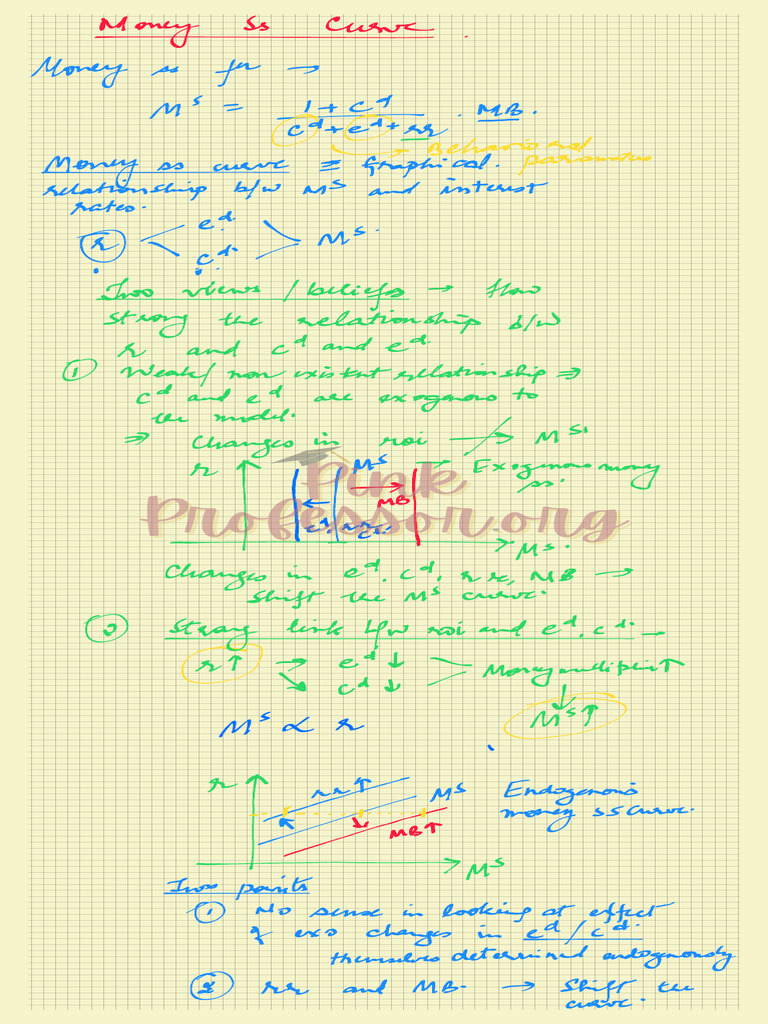 Money Ss Curve.
Money ss fn →
M^s = (1 + c^d) / (c^d + e^d + rr) . MB.
Behavioral parameters
Money ss curve ≡ Graphical
relationship b/w M^s and interest
rates.
r < e^d c^d > M^s.
Two views / beliefs → How
strong the relationship b/w
r and c^d and e^d.
① Weak/ non existent relationship ⇒
c^d and e^d are exogenous to
the model.
⇒ Changes in roi ↛ M^s.
r M^s Exogenous money
ss.
MB
M^s.
Pink
Professor.org
Changes in e^d, c^d, rr, MB →
Shift the M^s curve.
② Strong link b/w roi and e^d, c^d. —
r↑ → e^d ↓ Money multiplier↑
↘ c^d ↓
M^s ∝ r M^s↑
r rr↑ M^s Endogenous
money ss curve.
MB↑
M^s
Two points
① No sense in looking at effect
of exo changes in e^d/c^d.
themselves determined endogenously
② rr and MB. → Shift the
curve.